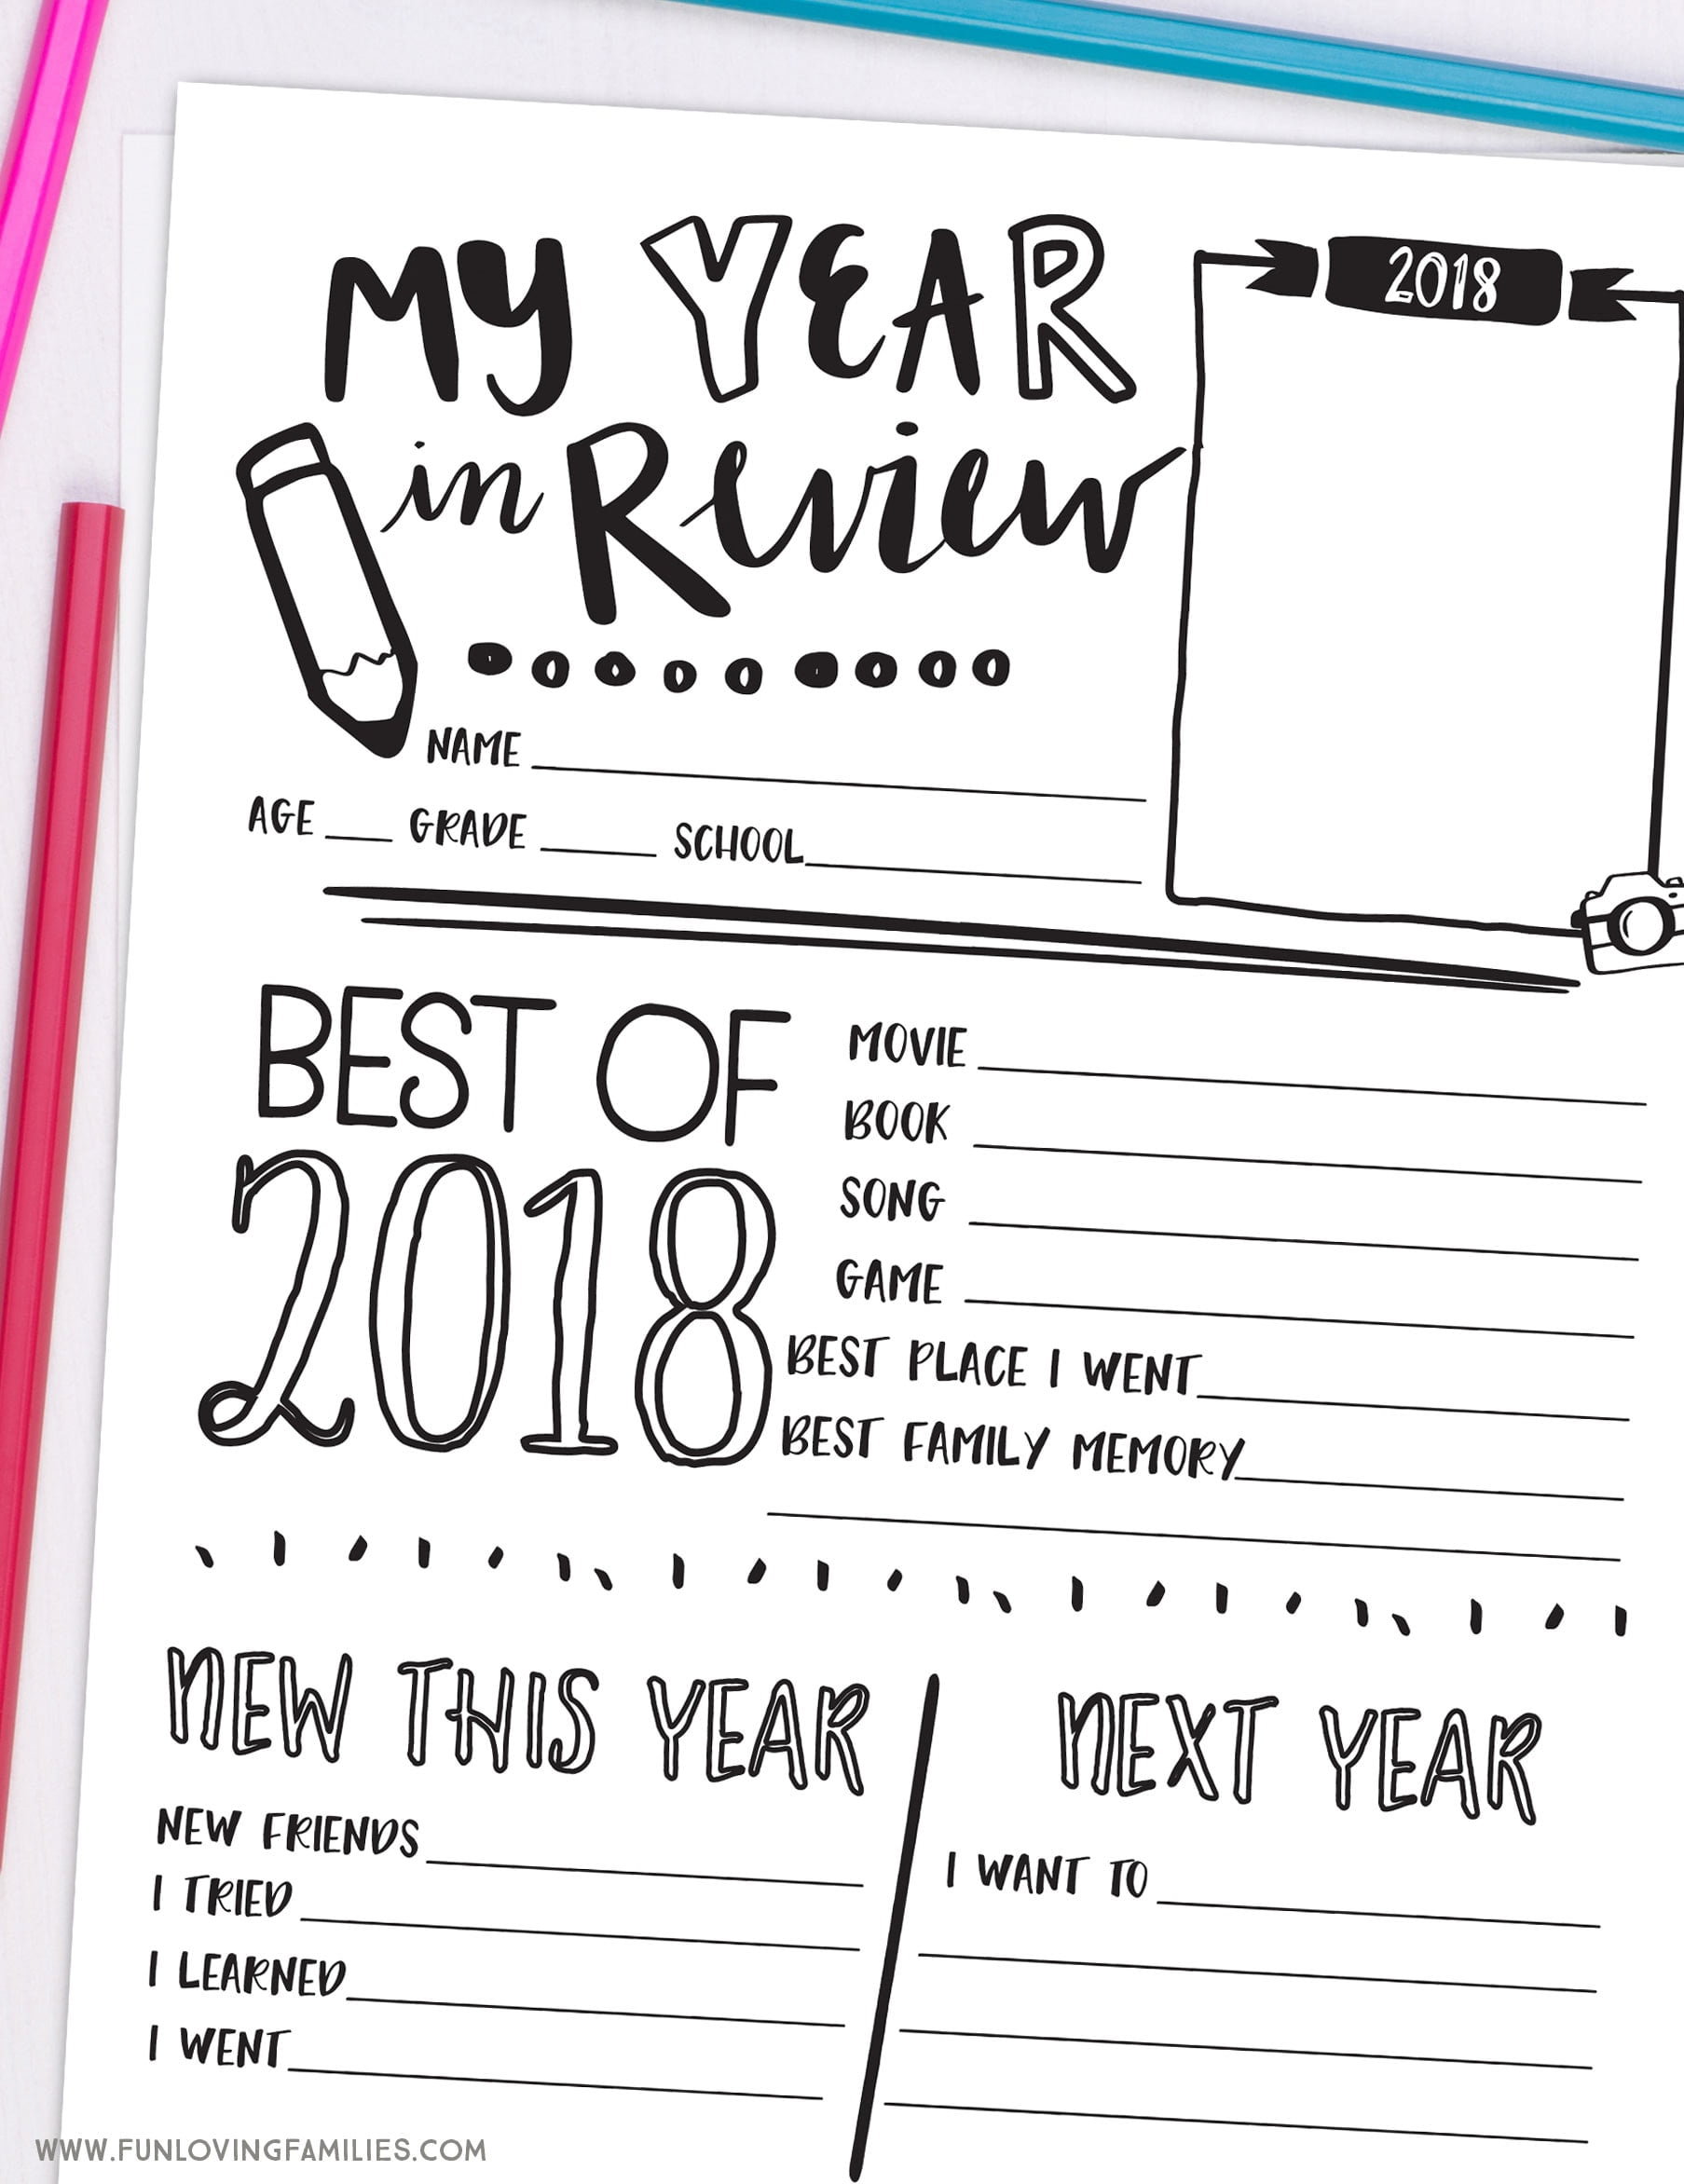 MY YEAR
in Review
2018
NAME
AGE GRADE SCHOOL
BEST OF
2018
MOVIE
BOOK
SONG
GAME
BEST PLACE I WENT
BEST FAMILY MEMORY
NEW THIS YEAR
NEW FRIENDS
I TRIED
I LEARNED
I WENT
NEXT YEAR
I WANT TO
WWW.FUNLOVINGFAMILIES.COM